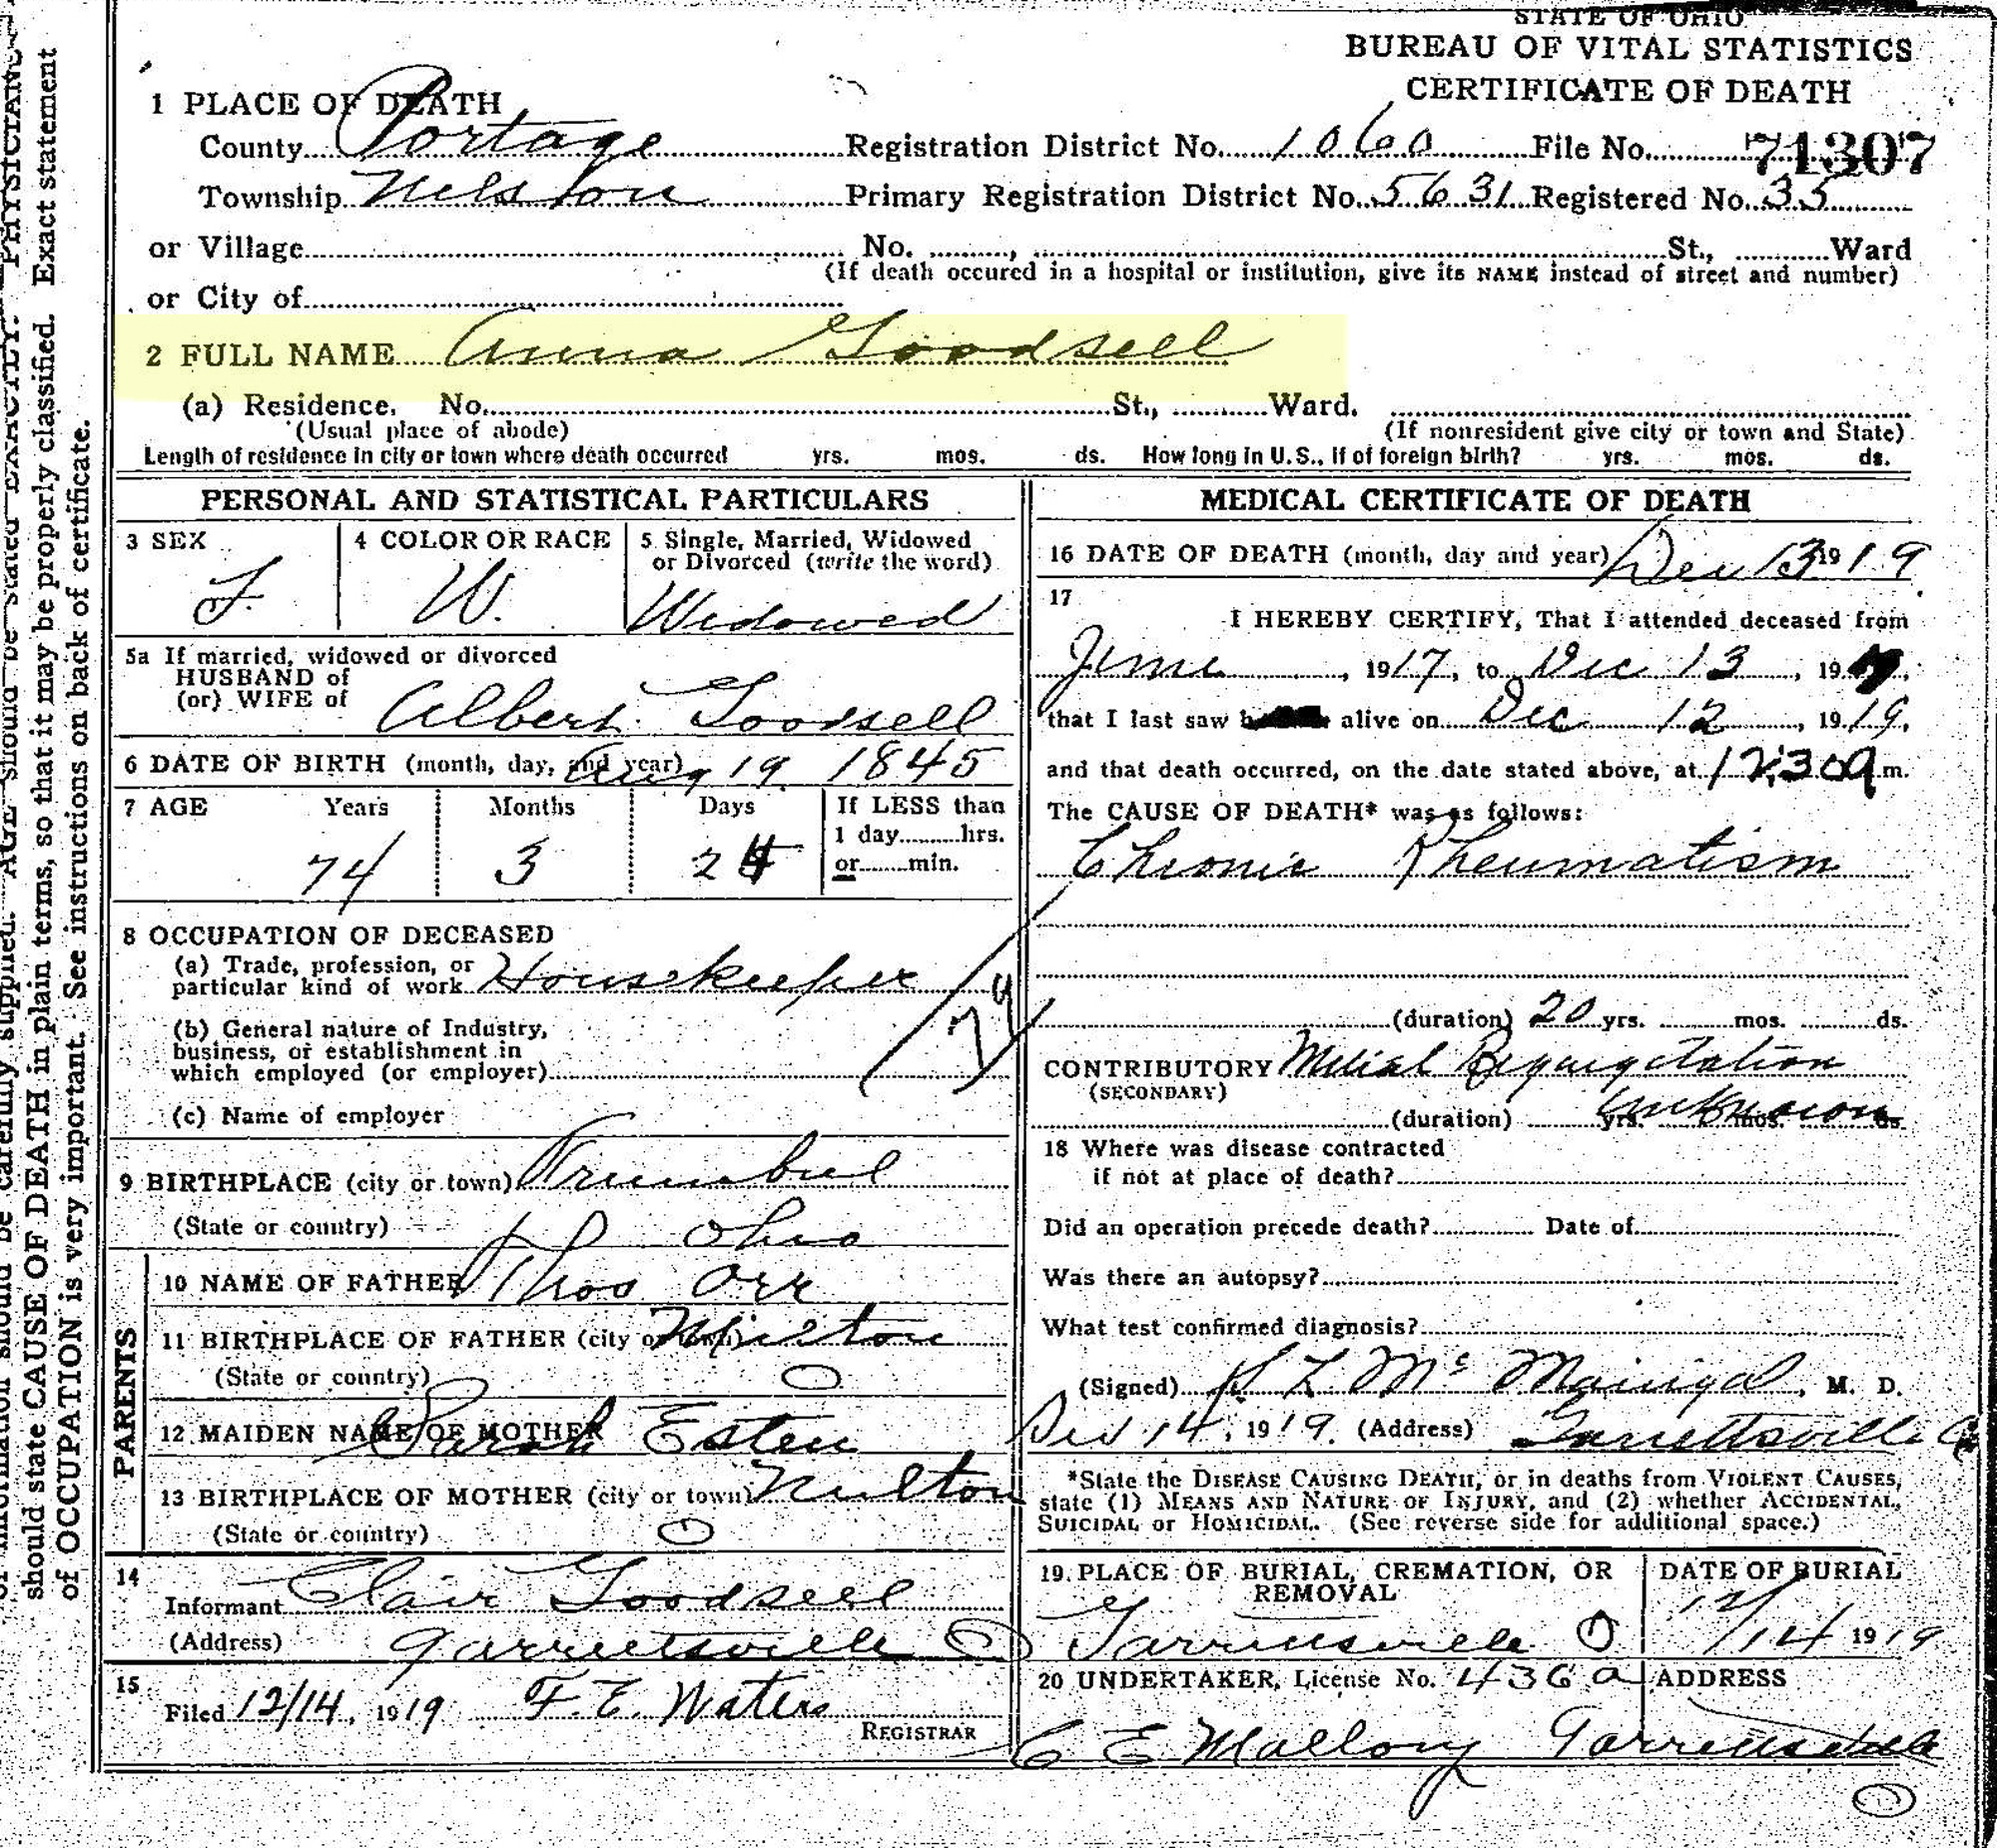 STATE OF OHIO
BUREAU OF VITAL STATISTICS
CERTIFICATE OF DEATH
1 PLACE OF DEATH
County Portage Registration District No. 1060 File No. 71307
Township Nelson Primary Registration District No. 5631 Registered No. 35
or Village No. , St., Ward
(If death occured in a hospital or institution, give its NAME instead of street and number)
or City of
2 FULL NAME Anna Goodsell
(a) Residence. No. St., Ward.
(Usual place of abode) (If nonresident give city or town and State)
Length of residence in city or town where death occurred yrs. mos. ds. How long in U. S., if of foreign birth? yrs. mos. ds.
PERSONAL AND STATISTICAL PARTICULARS
3 SEX
F.
4 COLOR OR RACE
W.
5 Single, Married, Widowed
or Divorced (write the word)
Widowed
5a If married, widowed or divorced
HUSBAND of
(or) WIFE of
Albert Goodsell
6 DATE OF BIRTH (month, day, and year) Aug 19 1845
7 AGE Years Months Days If LESS than
1 day hrs.
or min.
74 3 24
8 OCCUPATION OF DECEASED
(a) Trade, profession, or
particular kind of work Housekeeper
(b) General nature of Industry,
business, or establishment in
which employed (or employer)
(c) Name of employer
74
9 BIRTHPLACE (city or town) Trumbul
(State or country) Ohio
PARENTS
10 NAME OF FATHER Thos Orr
11 BIRTHPLACE OF FATHER (city or town) Milton
(State or country) O
12 MAIDEN NAME OF MOTHER Sarah Esten
13 BIRTHPLACE OF MOTHER (city or town) Milton
(State or country) O
14
Informant Clair Goodsell
(Address) Garrettsville O
15
Filed 12/14, 1919 F. E. Waters
REGISTRAR
MEDICAL CERTIFICATE OF DEATH
16 DATE OF DEATH (month, day and year) Dec 13 1919
17
I HEREBY CERTIFY, That I attended deceased from
June, 1917, to Dec 13, 19
that I last saw h alive on Dec 12, 1919,
and that death occurred, on the date stated above, at 12:30 a m.
The CAUSE OF DEATH* was as follows:
Chronic Rheumatism
(duration) 20 yrs. mos. ds.
CONTRIBUTORY Mitral Regurgitation
(SECONDARY)
(duration) yrs. mos. ds. unknown
18 Where was disease contracted
if not at place of death?
Did an operation precede death? Date of
Was there an autopsy?
What test confirmed diagnosis?
(Signed) L Mc , M. D.
Dec 14, 1919. (Address) Garrettsville O
*State the DISEASE CAUSING DEATH, or in deaths from VIOLENT CAUSES,
state (1) MEANS AND NATURE OF INJURY, and (2) whether ACCIDENTAL,
SUICIDAL or HOMICIDAL. (See reverse side for additional space.)
19. PLACE OF BURIAL, CREMATION, OR
REMOVAL
Garrettsville O
DATE OF BURIAL
12/14 1919
20 UNDERTAKER, License No. 436 a ADDRESS
C E Mallory Garrettsville
O
should be carefully supplied. AGE should be stated EXACTLY. PHYSICIANS
should state CAUSE OF DEATH in plain terms, so that it may be properly classified. Exact statement
of OCCUPATION is very important. See instructions on back of certificate.